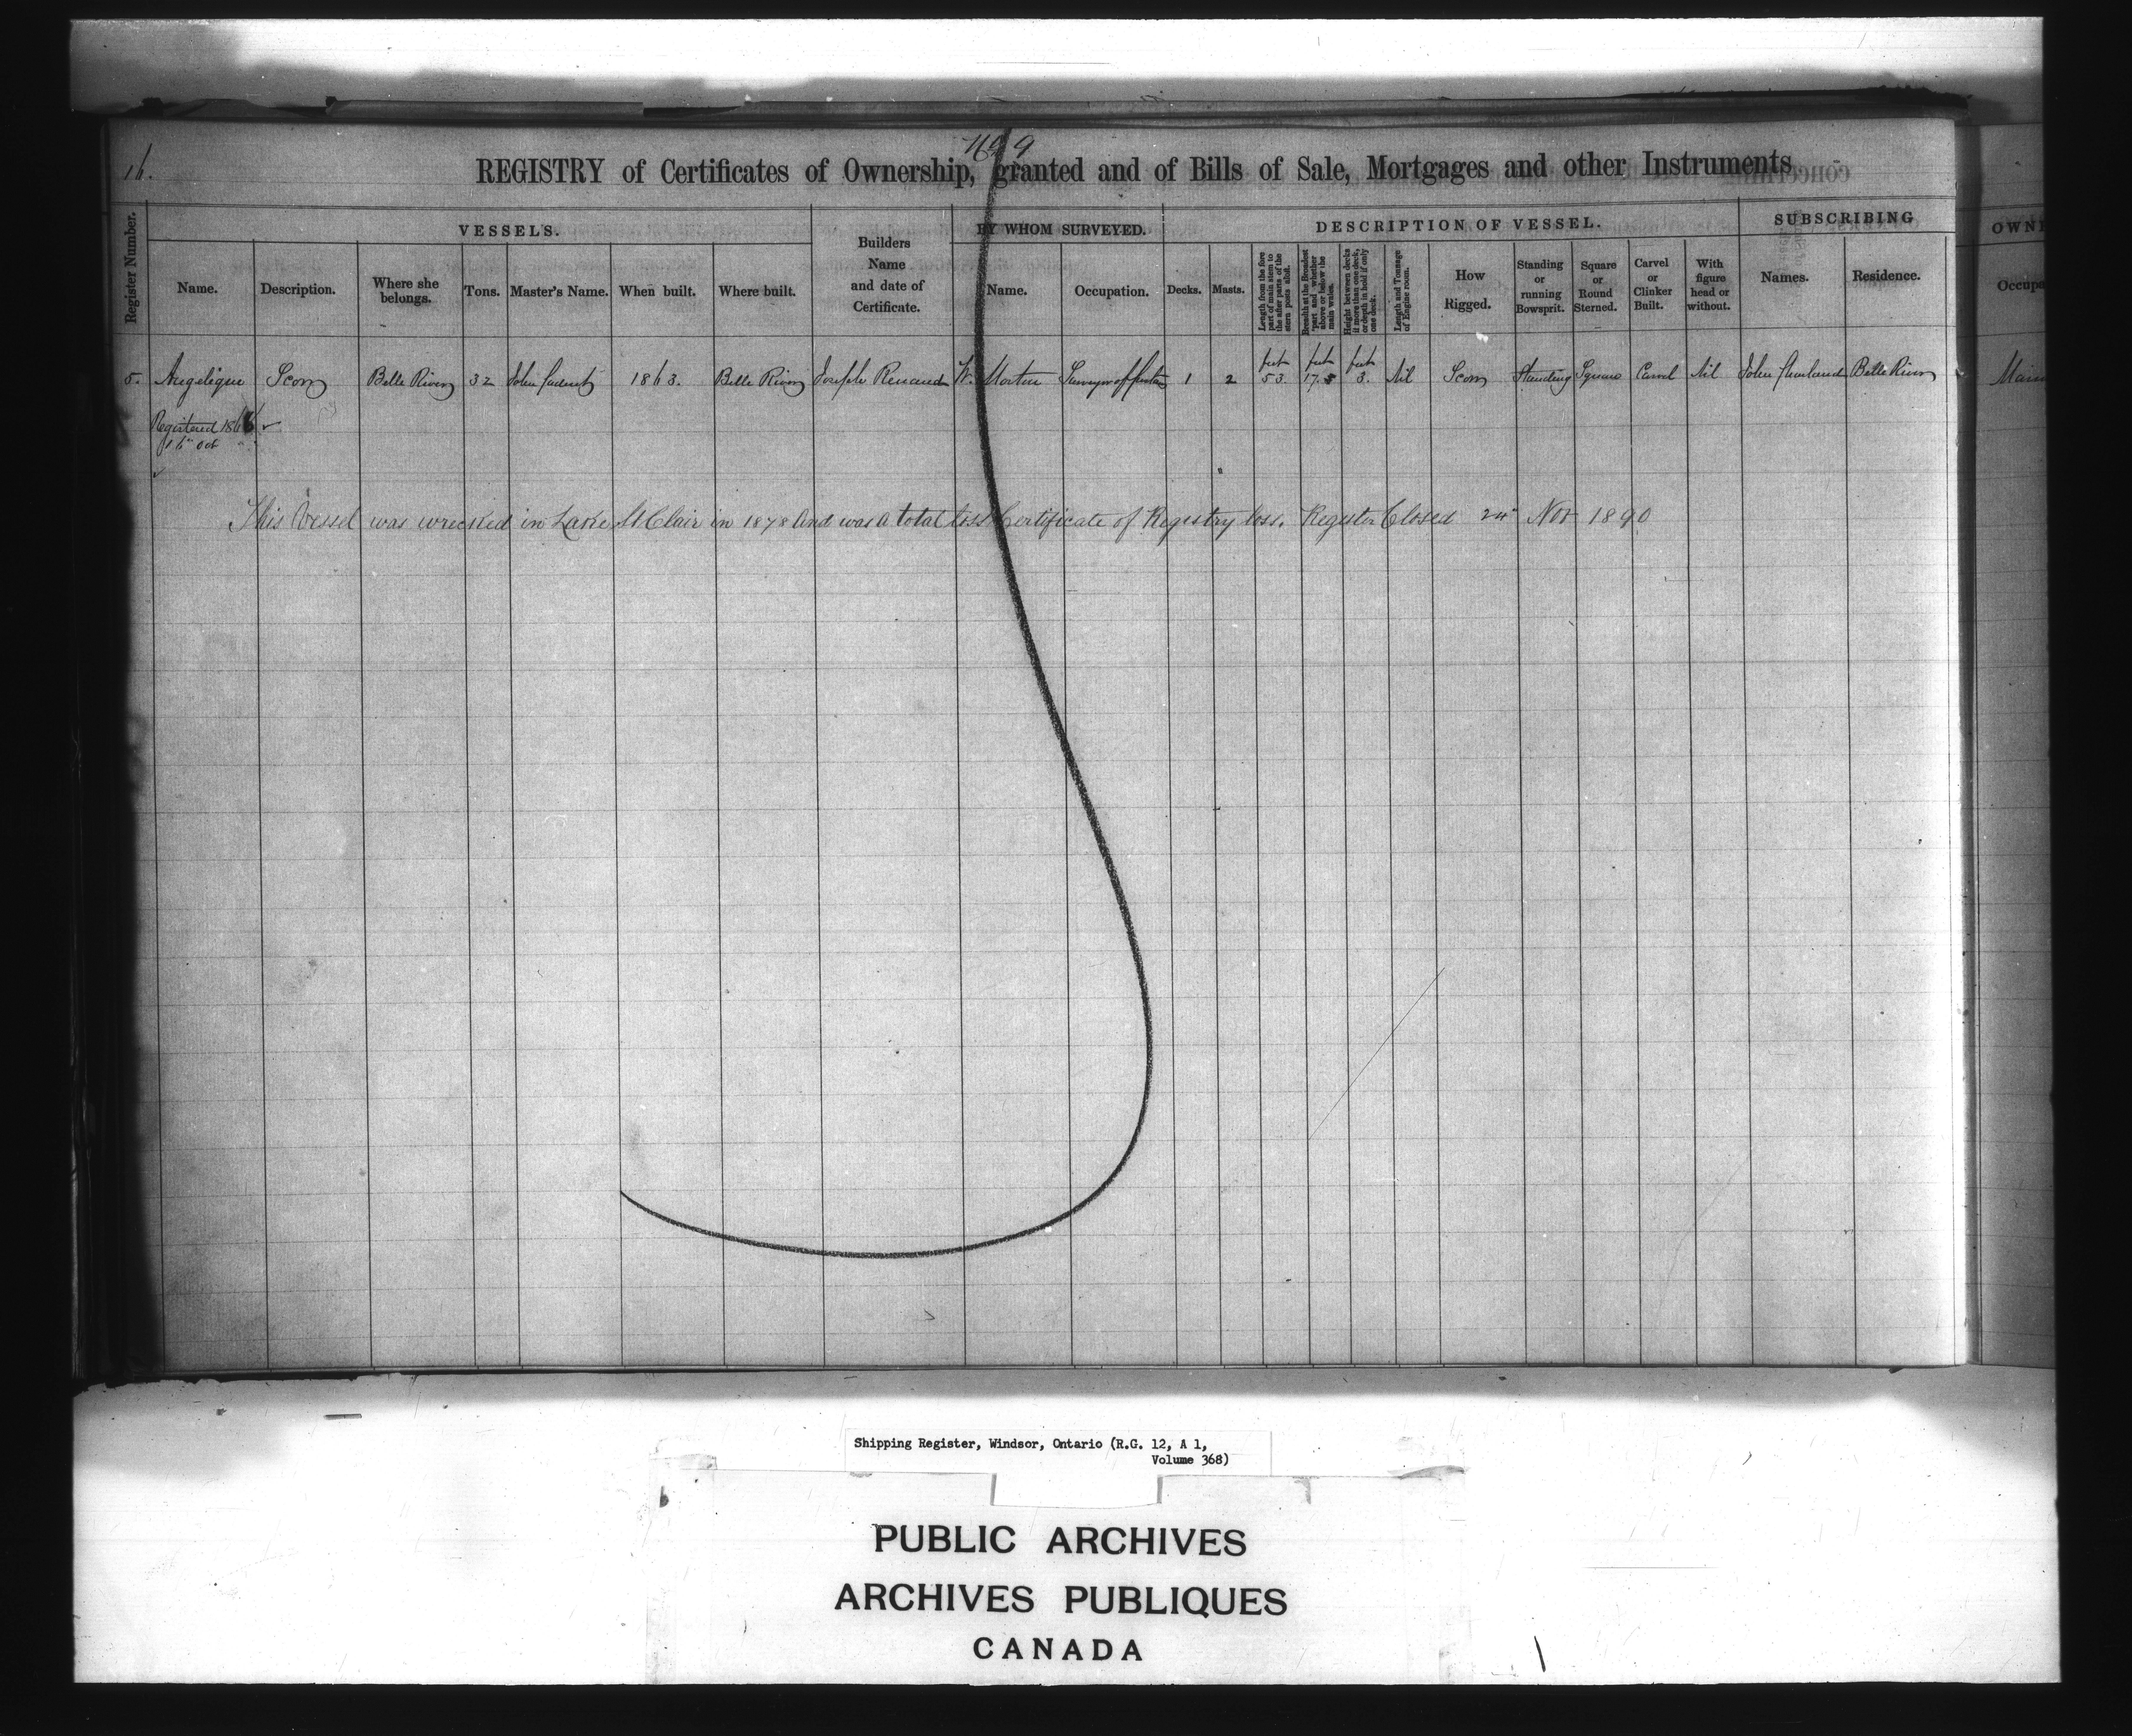 16.
REGISTRY of Certificates of Ownership, granted and of Bills of Sale, Mortgages and other Instruments
Register Number.
VESSELS.
Name.
Description.
Where she belongs.
Tons.
Master's Name.
When built.
Where built.
Builders Name and date of Certificate.
BY WHOM SURVEYED.
Name.
Occupation.
DESCRIPTION OF VESSEL.
Decks.
Masts.
Length from the fore part of main stem to the after parts of the stern posts abaft.
Breadth at the Broadest part and whether above or below the main wales.
Height between decks if more than one deck, or depth in hold if only one deck.
Length and Tonnage of Engine room.
How Rigged.
Standing or running Bowsprit.
Square or Round Sterned.
Carvel or Clinker Built.
With figure head or without.
SUBSCRIBING
Names.
Residence.
OWN
Occupa
5. Angelique Scow Belle River 32 John 1863. Belle River Joseph Renaud W. Morton 1 2 feet 53. feet 17.5 feet 3. Nil Scow Standing Square Carvel Nil John Belle River
Registered 1866
16th Oct
This Vessel was wrecked in Lake St Clair in 1878 and was a total loss Certificate of Registry loss. Register Closed 24th Nov 1890
Shipping Register, Windsor, Ontario (R.G. 12, A 1,
Volume 368)
PUBLIC ARCHIVES
ARCHIVES PUBLIQUES
CANADA